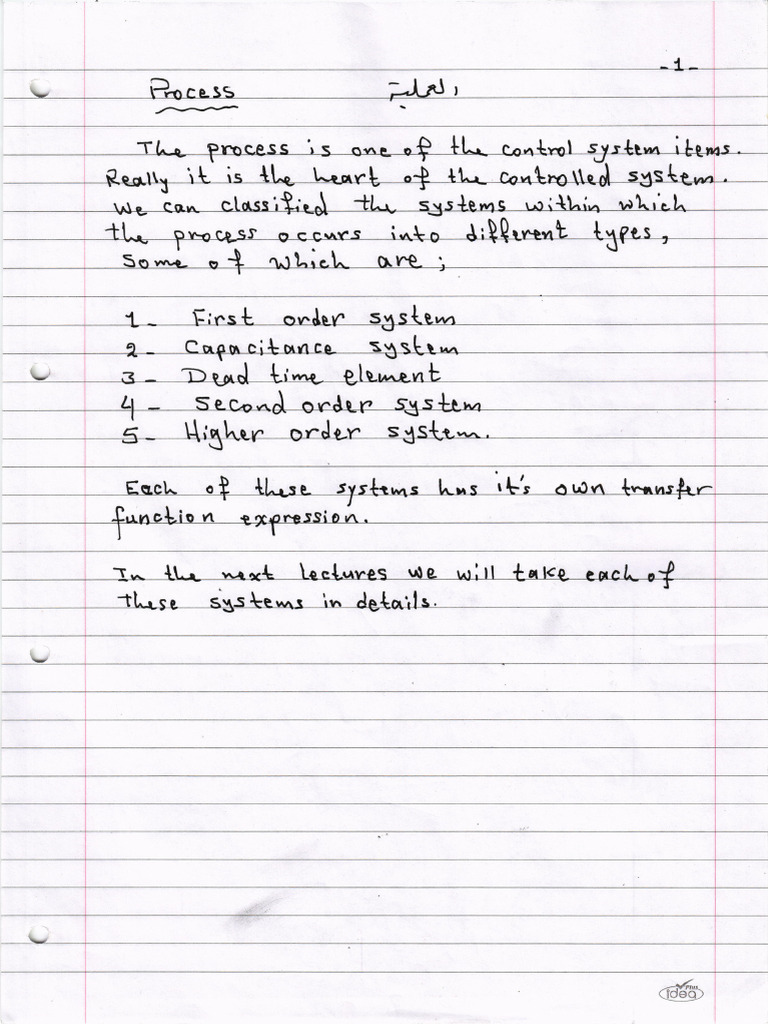 -1-
Process العملية
The process is one of the control system items.
Really it is the heart of the controlled system.
We can classified the systems within which
the process occurs into different types,
Some of which are;
1- First order system
2- Capacitance system
3- Dead time element
4- Second order system
5- Higher order system.
Each of these systems has it's own transfer
function expression.
In the next lectures we will take each of
These systems in details.
idea Plus